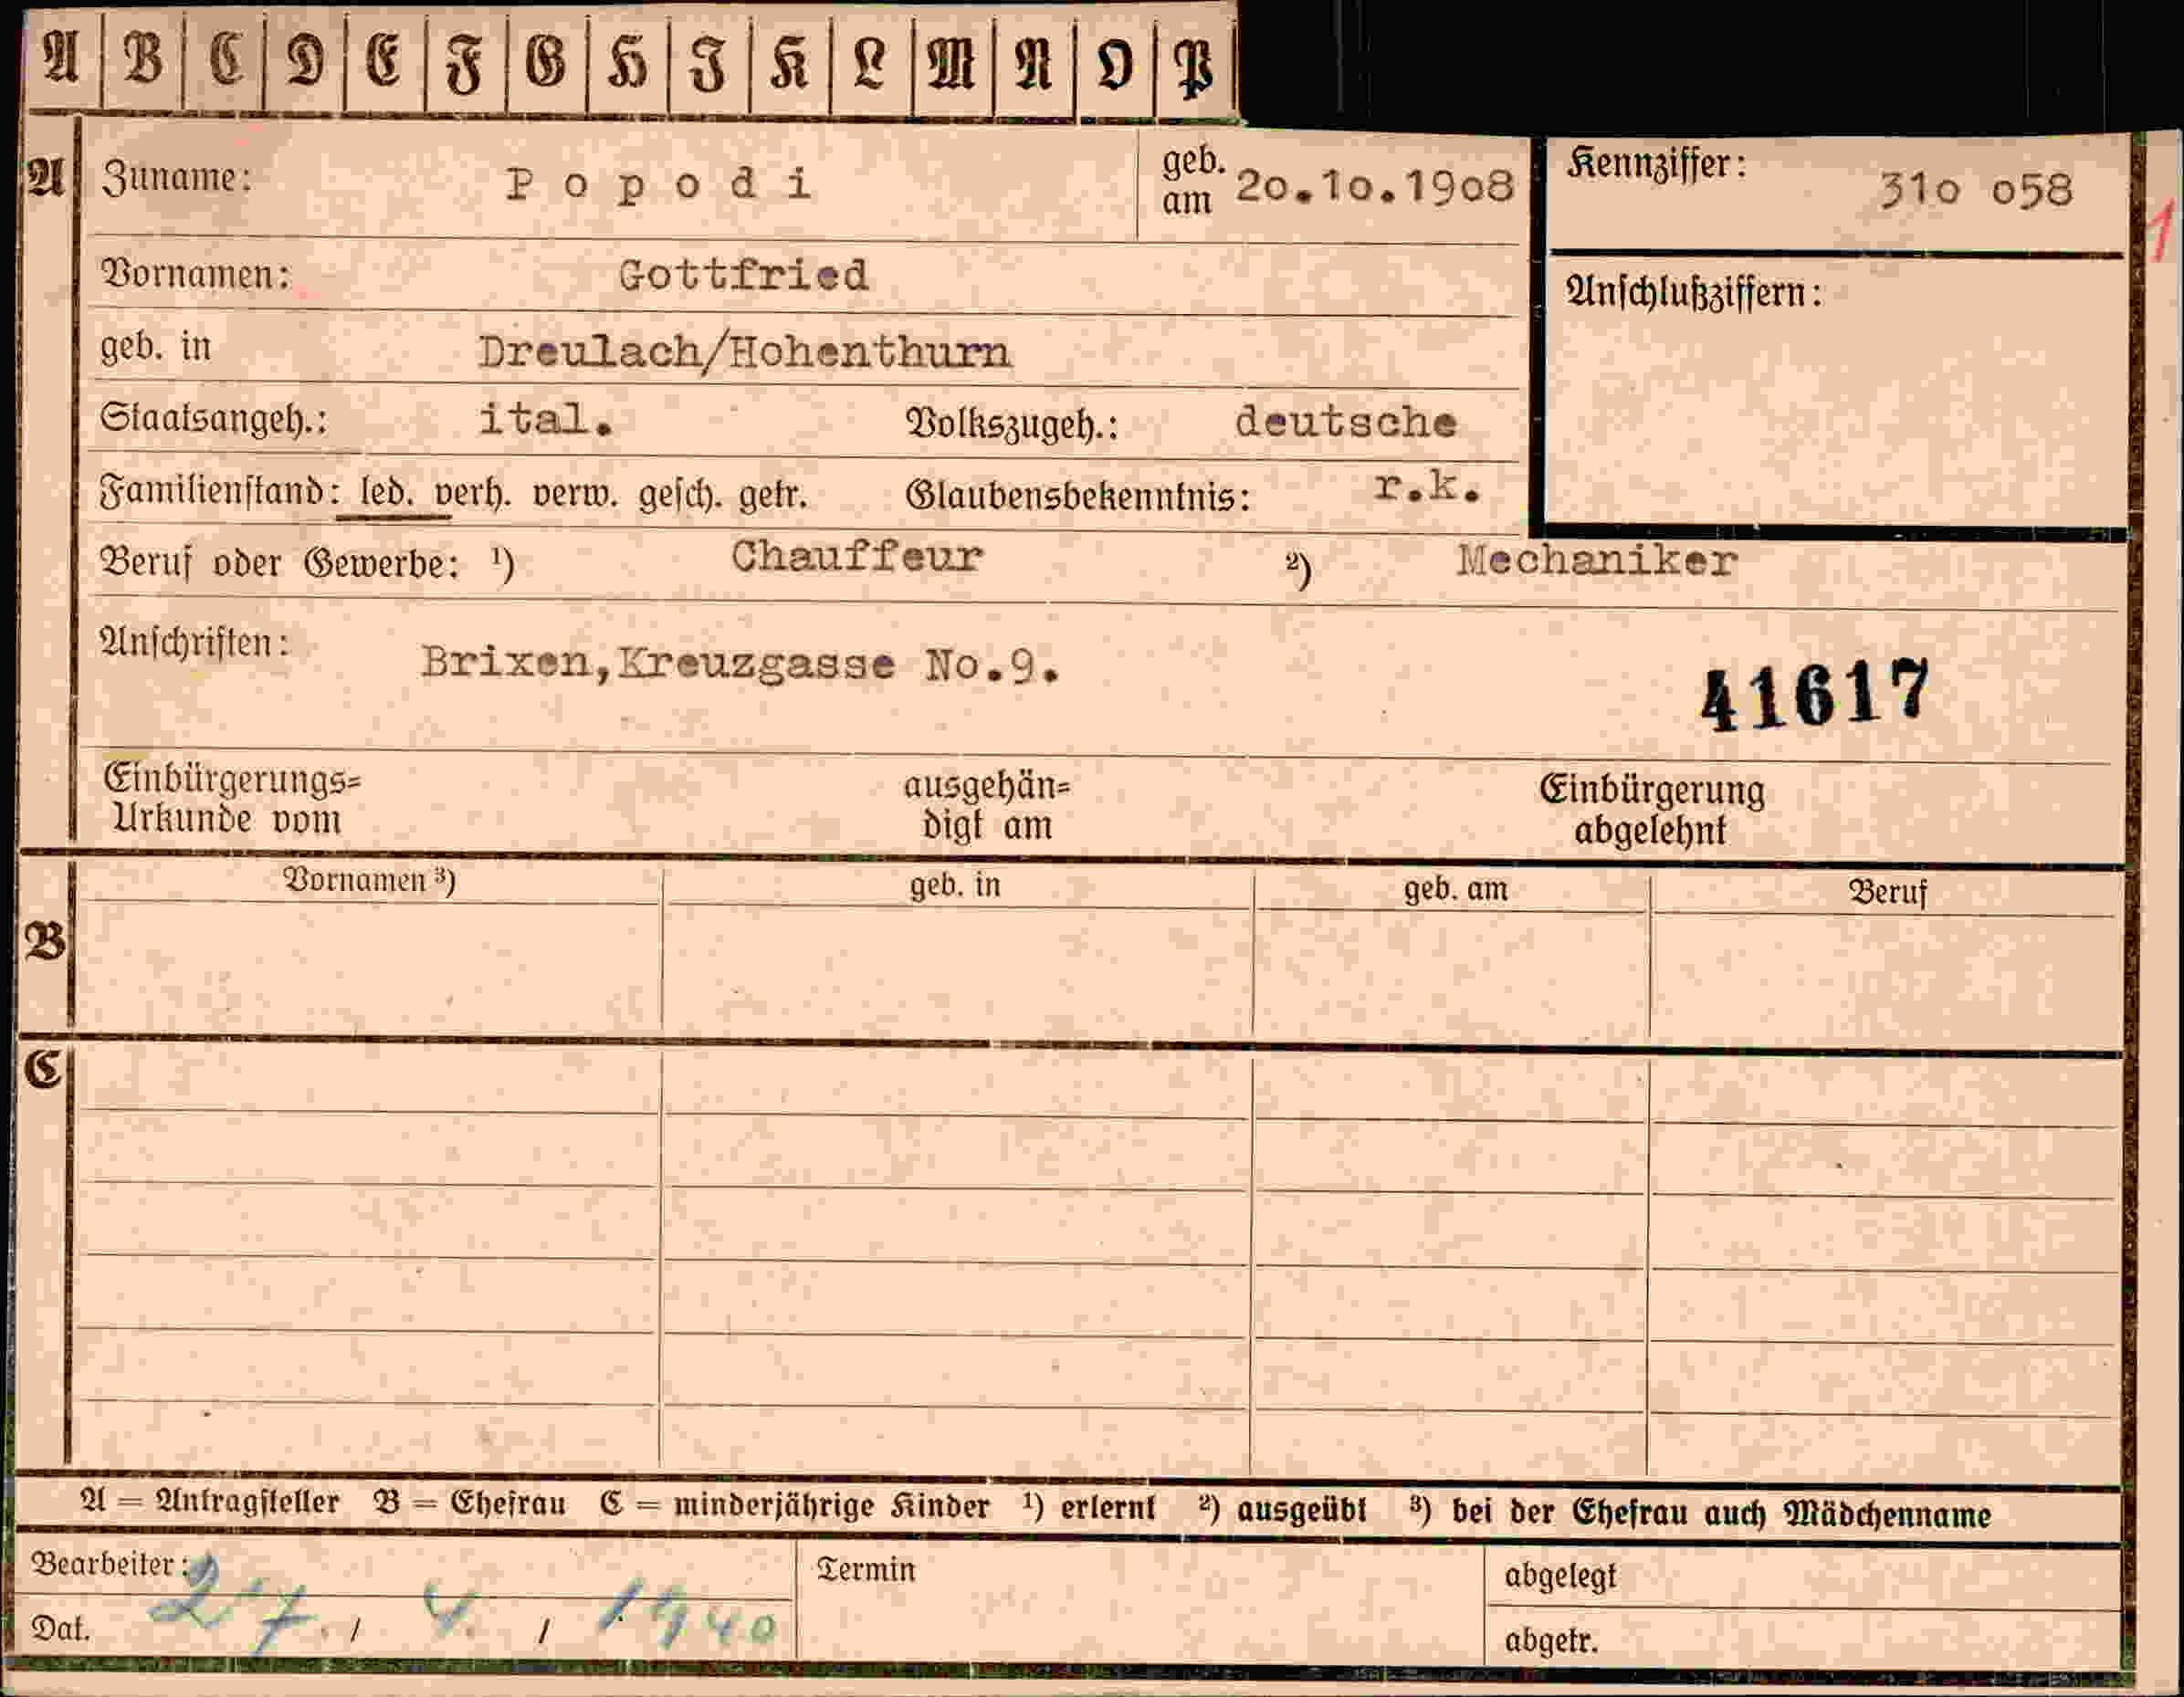 A B C D E F G H I K L M N O P
A Zuname: Popodi geb. am 20.10.1908 Kennziffer: 310 058
1
Vornamen: Gottfried Anschlußziffern:
geb. in Dreulach/Hohenthurn
Staatsangeh.: ital. Volkszugeh.: deutsche
Familienstand: led. verh. verw. gesch. getr. Glaubensbekenntnis: r.k.
Beruf oder Gewerbe: ¹) Chauffeur ²) Mechaniker
Anschriften: Brixen,Kreuzgasse No.9.
41617
Einbürgerungs= ausgehän= Einbürgerung
Urkunde vom digt am abgelehnt
B Vornamen ³) geb. in geb. am Beruf
C
A = Antragsteller B = Ehefrau C = minderjährige Kinder ¹) erlernt ²) ausgeübt ³) bei der Ehefrau auch Mädchenname
Bearbeiter: Termin abgelegt
Dat. 27. / 4. / 1940 abgetr.